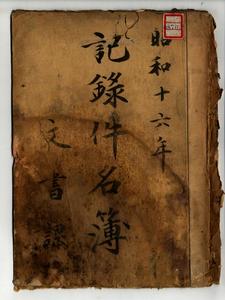 昭和十六年
記錄件名簿
文書課